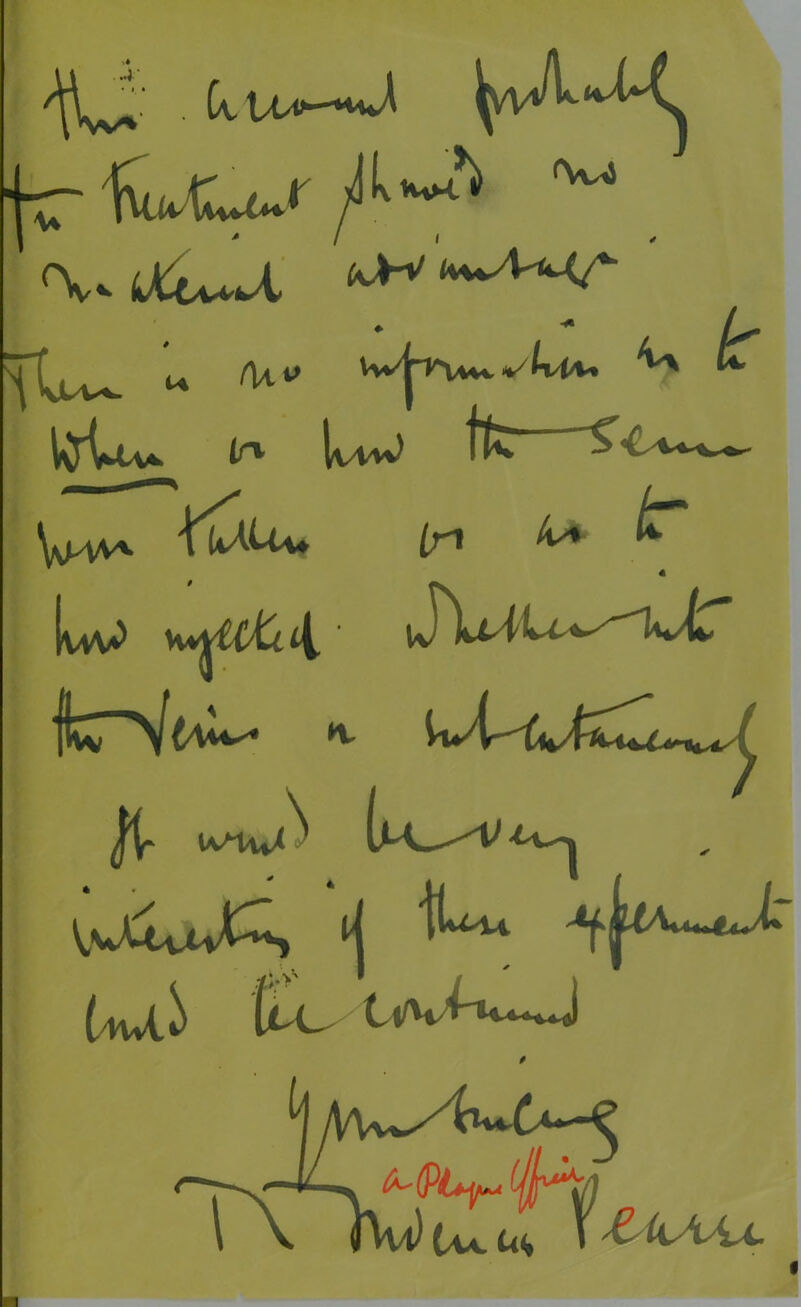 this account probably
the treatment showed no
material advantage.
There is no information as to
when or how the serum
were taken or as to
how injected. whether into
the Veins or subcutaneously
It would be very
interesting if these experiments
could be continued
Yours sincerely
a Plague Officer
Pearse